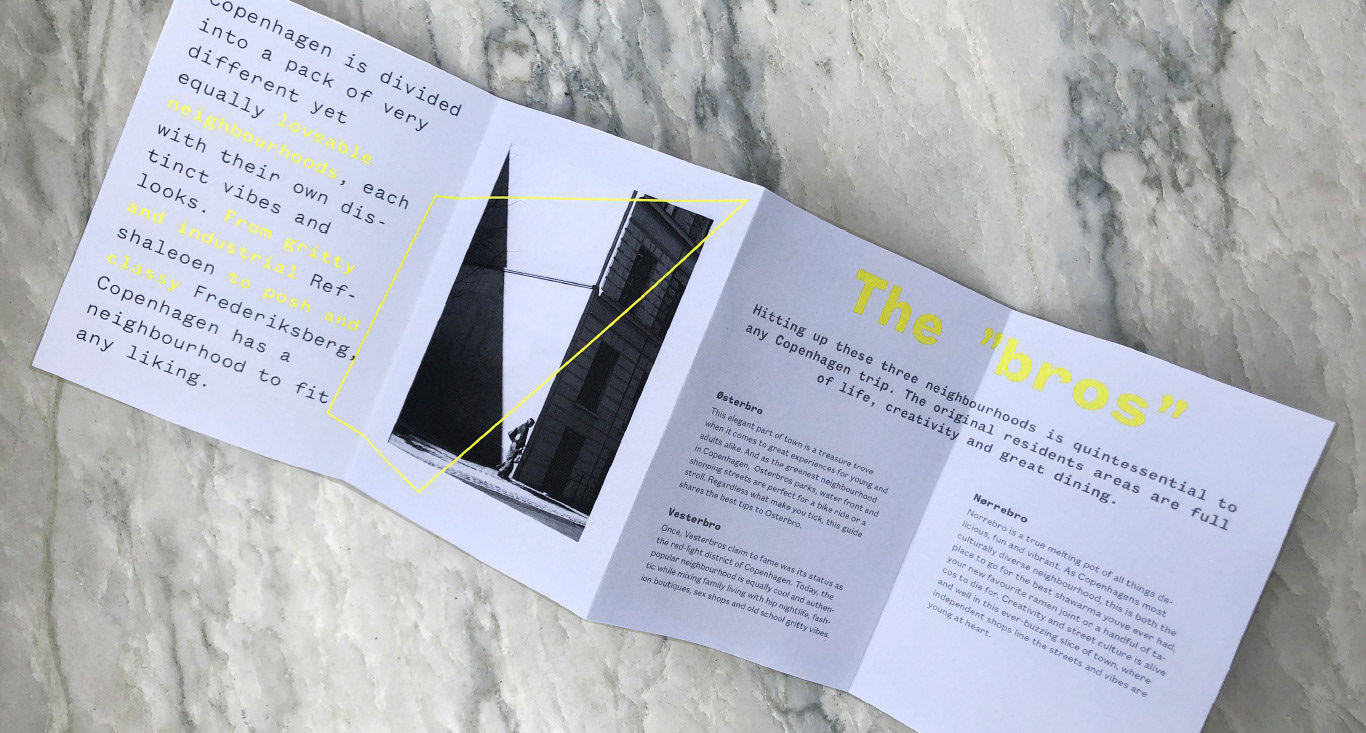 Copenhagen is divided
into a pack of very
different yet
equally loveable
neighbourhoods, each
with their own dis-
tinct vibes and
looks. From gritty
and industrial Ref-
shaleoen to posh and
classy Frederiksberg,
Copenhagen has a
neighbourhood to fit
any liking.
The "bros"
Hitting up these three neighbourhoods is quintessential to
any Copenhagen trip. The original residents areas are full
of life, creativity and great dining.
Østerbro
This elegant part of town is a treasure trove
when it comes to great experiences for young and
adults alike. And as the greenest neighbourhood
in Copenhagen, Osterbros parks, water front and
shopping streets are perfect for a bike ride or a
stroll. Regardless what make you tick, this guide
shares the best tips to Osterbro.
Vesterbro
Once, Vesterbros claim to fame was its status as
the red-light district of Copenhagen. Today, the
popular neighbourhood is equally cool and authen-
tic while mixing family living with hip nightlife, fash-
ion boutiques, sex shops and old school gritty vibes.
Nørrebro
Norrebro is a true melting pot of all things de-
licious, fun and vibrant. As Copenhagens most
culturally diverse neighbourhood, this is both the
place to go for the best shawarma youve ever had,
your new favourite ramen joint or a handful of ta-
cos to die for. Creativity and street culture is alive
and well in this ever-buzzing slice of town, where
independent shops line the streets and vibes are
young at heart.